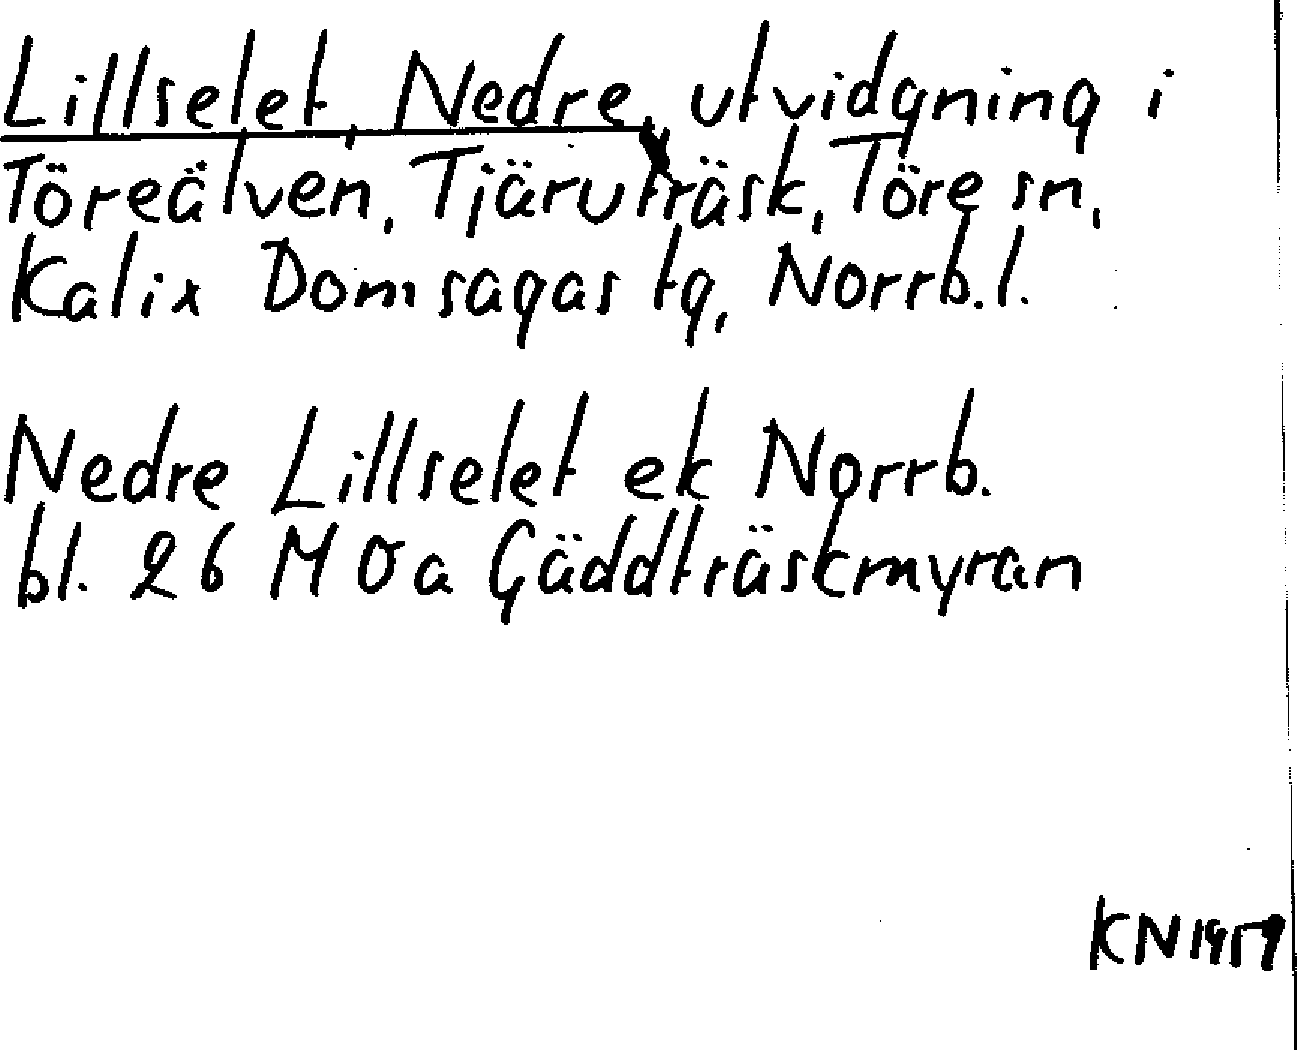 Lillselet, Nedre, utvidgning i
Töreälven, Tjäruträsk, Töre sn,
Kalix Domsagas tg, Norrb.l.
Nedre Lillselet ek Norrb.
bl. 26 M Öa Gäddträskmyran
KN 1959